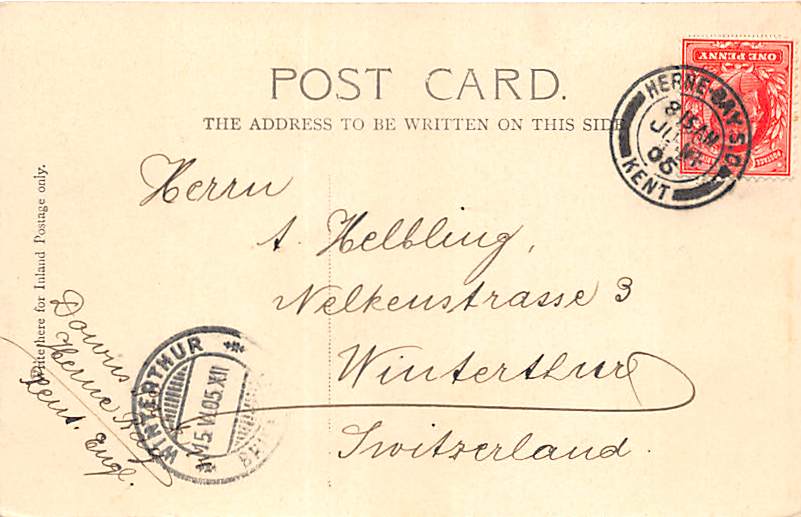 POST CARD.
THE ADDRESS TO BE WRITTEN ON THIS SIDE
Write here for Inland Postage only.
ONE PENNY
HERNE BAY S.O.
8 15 AM
05
KENT
Herrn
A. Helbling,
Nelkenstrasse 3
Winterthur
Switzerland.
Downs
Herne Bay
Kent. Engl.
WINTERTHUR
05.XII